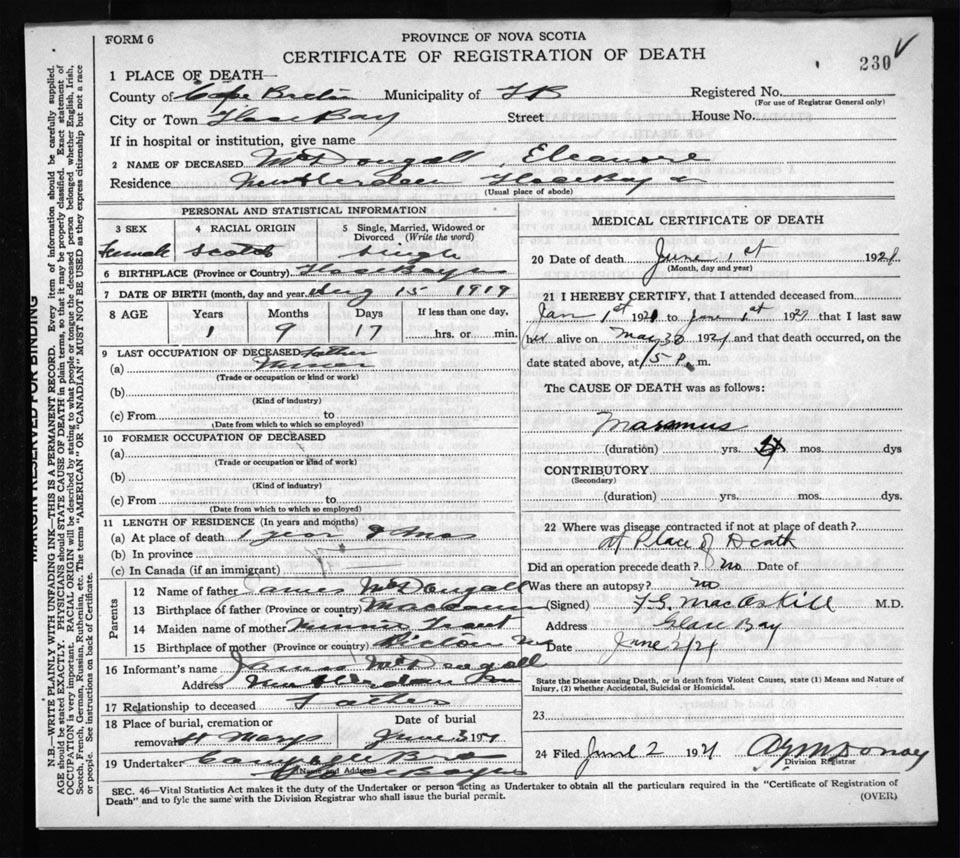 FORM 6
PROVINCE OF NOVA SCOTIA
CERTIFICATE OF REGISTRATION OF DEATH
230
1 PLACE OF DEATH—
County of Cape Breton Municipality of Registered No.
(For use of Registrar General only)
City or Town Glace Bay Street House No.
If in hospital or institution, give name
2 NAME OF DECEASED McDougall, Eleanore
Residence New Aberdeen Glace Bay
(Usual place of abode)
PERSONAL AND STATISTICAL INFORMATION
3 SEX 4 RACIAL ORIGIN 5 Single, Married, Widowed or Divorced (Write the word)
Female Scotch Single
6 BIRTHPLACE (Province or Country) Glace Bay
7 DATE OF BIRTH (month, day and year) Aug 15 1919
8 AGE Years Months Days If less than one day,
1 9 17 hrs. or min.
9 LAST OCCUPATION OF DECEASED Father
(a) Miner
(Trade or occupation or kind or work)
(b)
(Kind of industry)
(c) From to
(Date from which to which so employed)
10 FORMER OCCUPATION OF DECEASED
(a)
(Trade or occupation or kind of work)
(b)
(Kind of industry)
(c) From to
(Date from which to which so employed)
11 LENGTH OF RESIDENCE (In years and months)
(a) At place of death 1 year 9 mos
(b) In province
(c) In Canada (if an immigrant)
Parents
12 Name of father James McDougall
13 Birthplace of father (Province or country)
14 Maiden name of mother Minnie
15 Birthplace of mother (Province or country) Pictou
16 Informant's name James McDougall
Address New Aberdeen
17 Relationship to deceased Father
18 Place of burial, cremation or Date of burial
removal St Marys June 3 1921
19 Undertaker
(Name and Address)
MEDICAL CERTIFICATE OF DEATH
20 Date of death June 1st 1921
(Month, day and year)
21 I HEREBY CERTIFY, that I attended deceased from
Jan 1st 1921 to June 1st 1921 that I last saw
her alive on May 30 1921 and that death occurred, on the
date stated above, at 5 P.m.
The CAUSE OF DEATH was as follows:
Marasmus
(duration) yrs. mos. dys
CONTRIBUTORY
(Secondary)
(duration) yrs. mos. dys.
22 Where was disease contracted if not at place of death?
At Place of Death
Did an operation precede death? No Date of
Was there an autopsy? No
(Signed) MacAskill M.D.
Address Glace Bay
Date June 2/21
State the Disease causing Death, or in death from Violent Causes, state (1) Means and Nature of
Injury, (2) whether Accidental, Suicidal or Homicidal.
23
24 Filed June 2 1921
Division Registrar
SEC. 46—Vital Statistics Act makes it the duty of the Undertaker or person acting as Undertaker to obtain all the particulars required in the "Certificate of Registration of
Death" and to fyle the same with the Division Registrar who shall issue the burial permit.
(OVER)
MARGIN RESERVED FOR BINDING
N.B.—WRITE PLAINLY WITH UNFADING INK—THIS IS A PERMANENT RECORD. Every item of information should be carefully supplied.
AGE should be stated EXACTLY. PHYSICIANS should STATE CAUSE OF DEATH in plain terms, so that it may be properly classified. Exact statement of
OCCUPATION is very important. RACIAL ORIGIN will be described by stating to what people or tongue the deceased person belonged whether English, Irish,
Scotch, French, German, Russian, Ruthenian, etc. The terms "AMERICAN" OR "CANADIAN" MUST NOT BE USED as they express citizenship but not a race
or people. See instructions on back of Certificate.